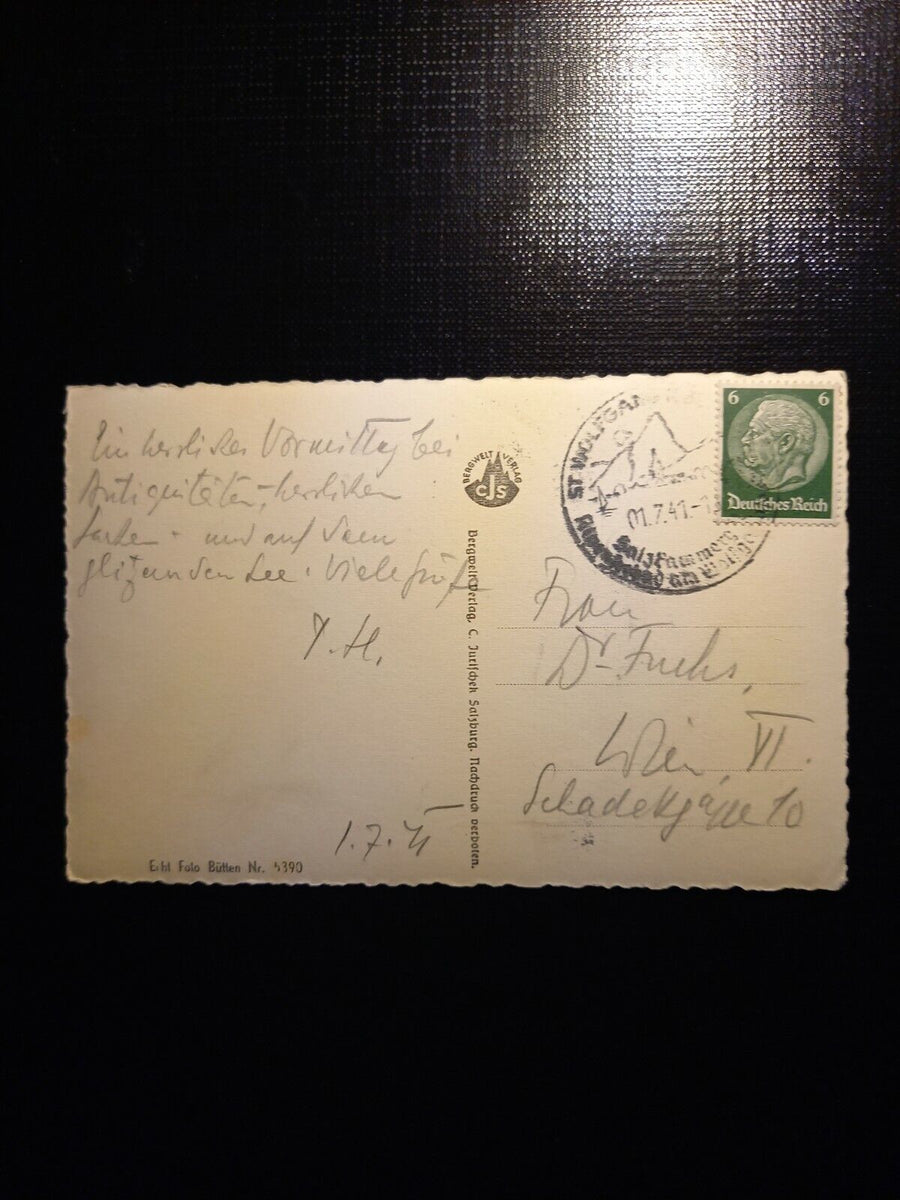 Ein herrlicher Vormittag bei
Antiquitäten, herrlichen
Sachen - und auf dem
glitzernden See. Viele Grüße
1.7.41
Echt Foto Bütten Nr. 5390
BERGWELT VERLAG
CJS
Bergwelt Verlag, C. Jurischek Salzburg. Nachdruck verboten.
ST. WOLFGANG
01.7.41
Salzkammerg
6 6
Deutsches Reich
Frau
Dr. Fuchs,
Wien, VI.
Schadekgasse 10